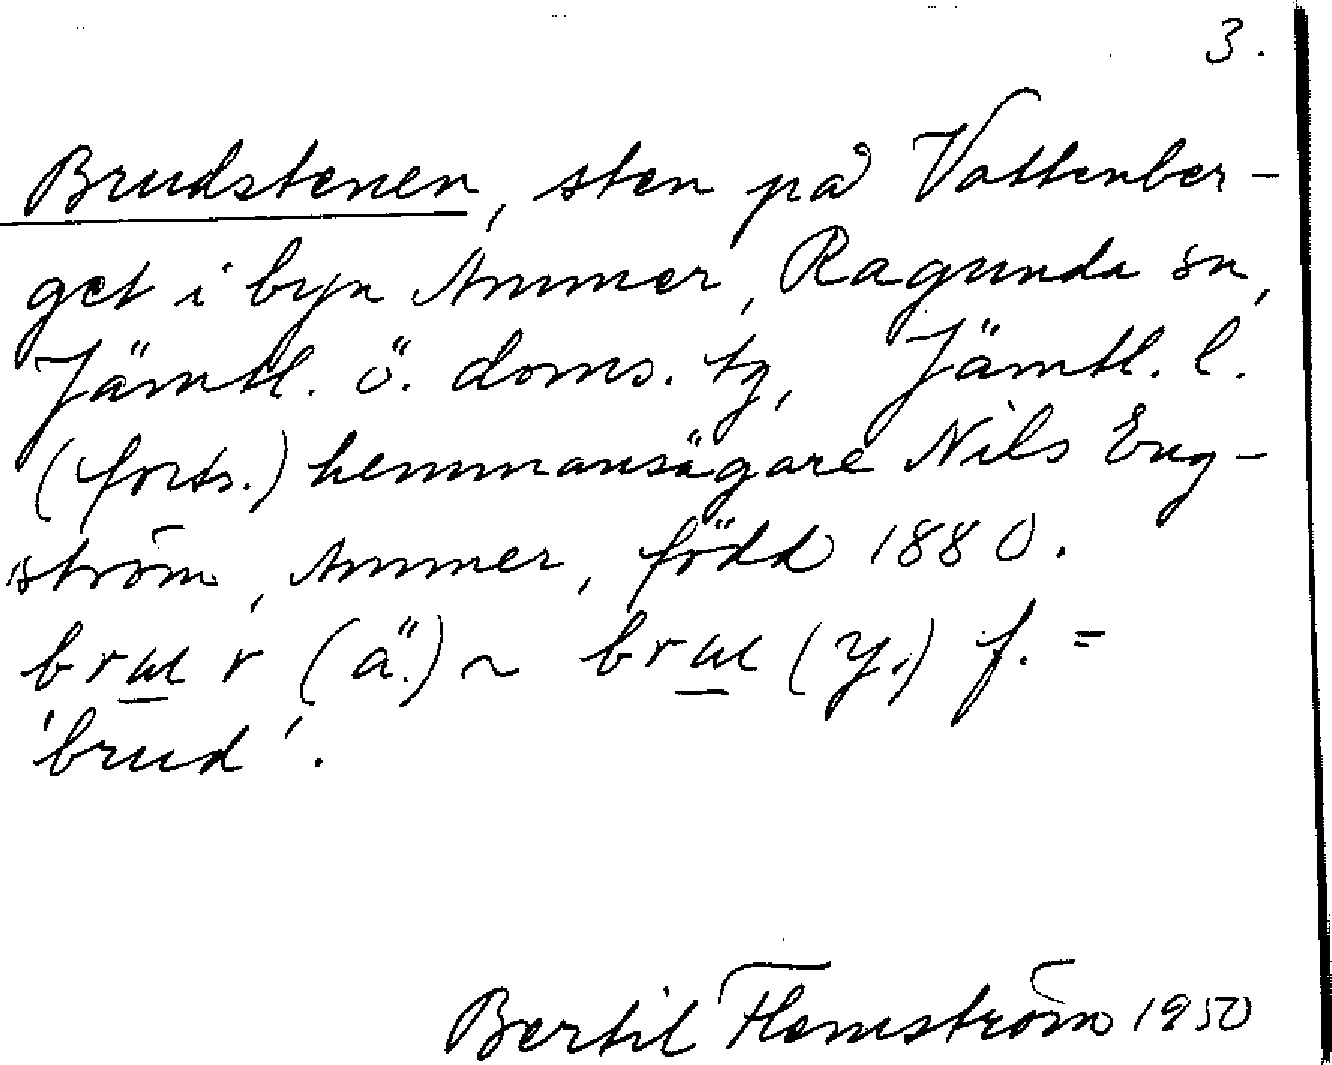 3.
Brudstenen, sten på Vattenber-
get i byn Ammer, Ragunda sn,
Jämtl. ö. doms. tg, Jämtl. l.
(forts.) hemmansägare Nils Eng-
ström, Ammer, född 1880.
bru r (ä.) ~ bru (y.) f. =
'brud'.
Bertil Flemström 1950